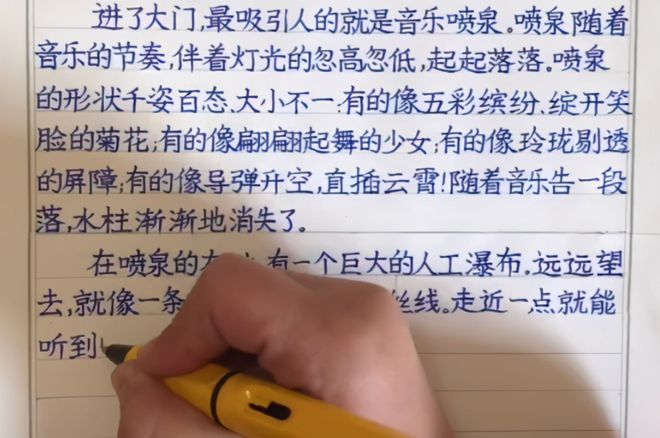 进了大门,最吸引人的就是音乐喷泉。喷泉随着
音乐的节奏,伴着灯光的忽高忽低,起起落落。喷泉
的形状千姿百态、大小不一.有的像五彩缤纷、绽开笑
脸的菊花;有的像翩翩起舞的少女;有的像玲珑剔透
的屏障;有的像导弹升空,直插云霄!随着音乐告一段
落,水柱渐渐地消失了。
在喷泉的 有一个巨大的人工瀑布.远远望
去,就像一条 丝线。走近一点就能
听到